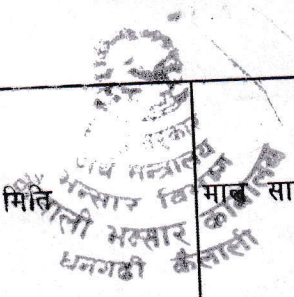 सरकार
अर्थ मन्त्रालय
भन्सार विभाग
कैलाली भन्सार कार्यालय
धनगढी कैलाली
मिति
माल सा